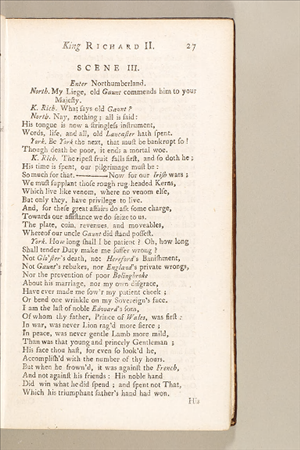 King RICHARD II. 27
SCENE III.
Enter Northumberland.
North. My Liege, old Gaunt commends him to your
Majesty.
K. Rich. What says old Gaunt?
North. Nay, nothing; all is said:
His tongue is now a stringless instrument,
Words, life, and all, old Lancaster hath spent.
York. Be York the next, that must be bankrupt so!
Though death be poor, it ends a mortal woe.
K. Rich. The ripest fruit falls first, and so doth he;
His time is spent, our pilgrimage must be:
So much for that. ——— Now for our Irish wars;
We must supplant those rough rug-headed Kerns,
Which live like venom, where no venom else,
But only they, have privilege to live.
And, for these great affairs do ask some charge,
Towards our assistance we do seize to us.
The plate, coin, revenues, and moveables,
Whereof our uncle Gaunt did stand possest.
York. How long shall I be patient? Oh, how long
Shall tender Duty make me suffer wrong?
Not Glo'ster's death, not Hereford's Banishment,
Not Gaunt's rebukes, nor England's private wrongs,
Nor the prevention of poor Bolingbroke
About his marriage, nor my own disgrace,
Have ever made me sow'r my patient cheek;
Or bend one wrinkle on my Sovereign's face.
I am the last of noble Edward's sons,
Of whom thy father, Prince of Wales, was first:
In war, was never Lion rag'd more fierce;
In peace, was never gentle Lamb more mild,
Than was that young and princely Gentleman;
His face thou hast, for even so look'd he,
Accomplish'd with the number of thy hours.
But when he frown'd, it was against the French,
And not against his friends: His noble hand
Did win what he did spend; and spent not That,
Which his triumphant father's hand had won.
His